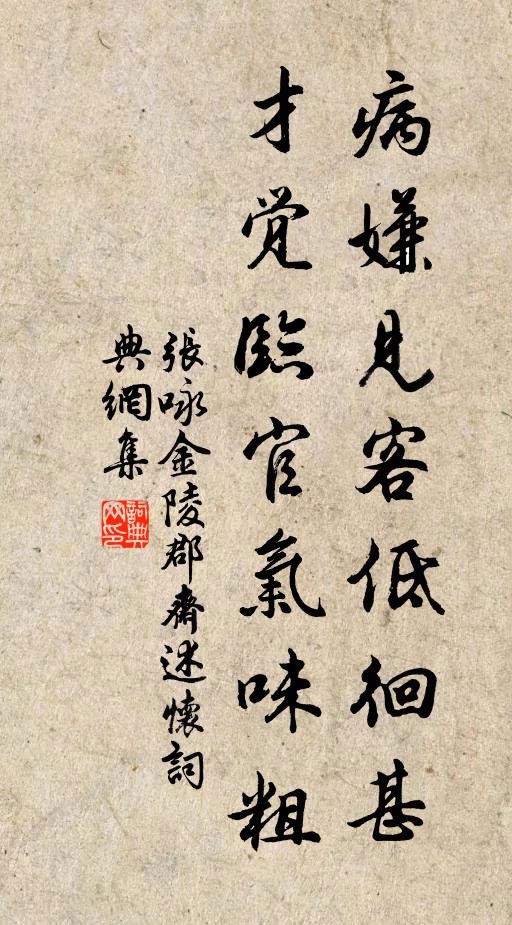 病嫌見客低徊甚
才覚臨官氣味粗
張咏金陵郡齋述懷詞
典網集
詞典
网印